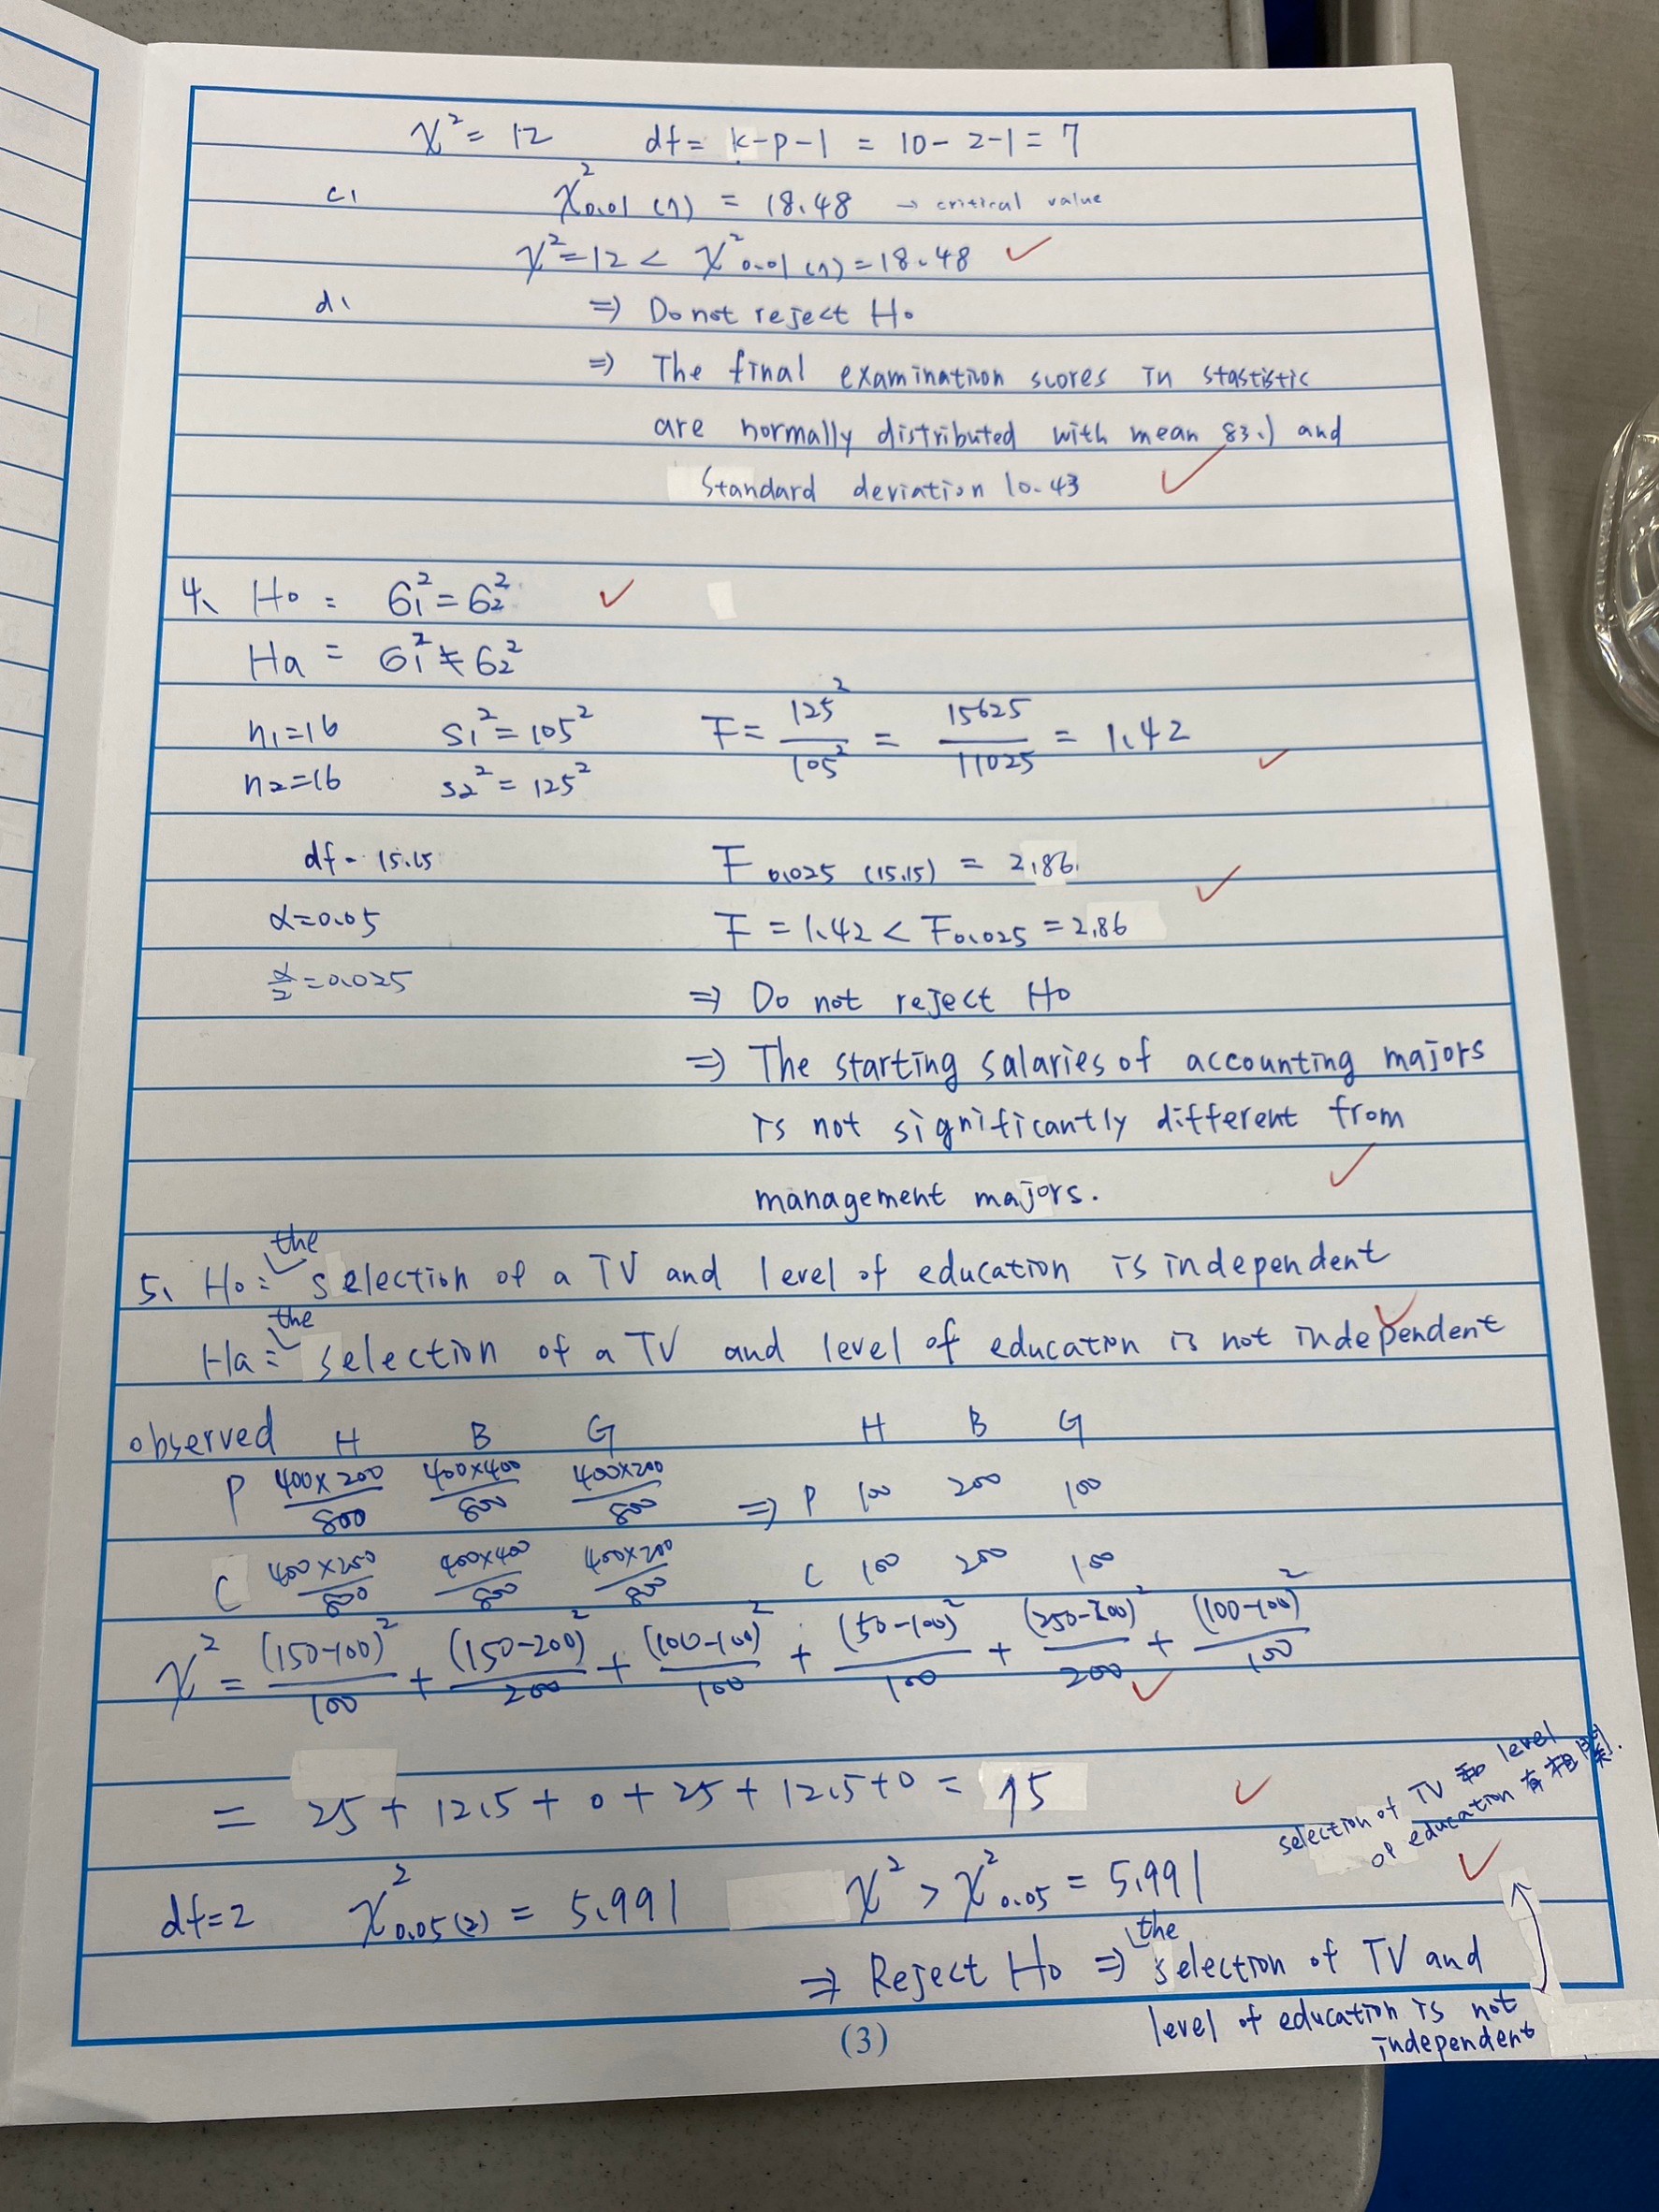 χ² = 12 df = k-p-1 = 10-2-1 = 7
c、 χ²0.01 (7) = 18.48 → critical value
χ² = 12 < χ²0.01 (7) = 18.48 ✓
d、 ⇒ Do not reject Ho
⇒ The final examination scores in stastistic
are normally distributed with mean 83.1 and
Standard deviation 10.43 ✓
4、 Ho : σ₁² = σ₂² ✓
Ha = σ₁² ≠ σ₂²
n₁=16 S₁² = 105² F = 125²/105² = 15625/11025 = 1.42 ✓
n₂=16 S₂² = 125²
df = 15.15 F 0.025 (15.15) = 2.86 ✓
α=0.05 F = 1.42 < F0.025 = 2.86
α/2 = 0.025 ⇒ Do not reject Ho
⇒ The starting salaries of accounting majors
is not significantly different from
management majors. ✓
5、 Ho : the selection of a TV and level of education is independent
Ha : the selection of a TV and level of education is not independent ✓
observed H B G H B G
P 400×200/800 400×400/800 400×200/800 ⇒ P 100 200 100
C 400×200/800 400×400/800 400×200/800 C 100 200 100
χ² = (150-100)²/100 + (150-200)²/200 + (100-100)²/100 + (50-100)²/100 + (250-200)²/200 + (100-100)²/100 ✓
= 25 + 12.5 + 0 + 25 + 12.5 + 0 = 75 ✓
selection of TV 和 level
of education 有相關. ✓
df=2 χ²0.05(2) = 5.991 χ² > χ²0.05 = 5.991
⇒ Reject Ho ⇒ the selection of TV and
level of education is not
independent
(3)